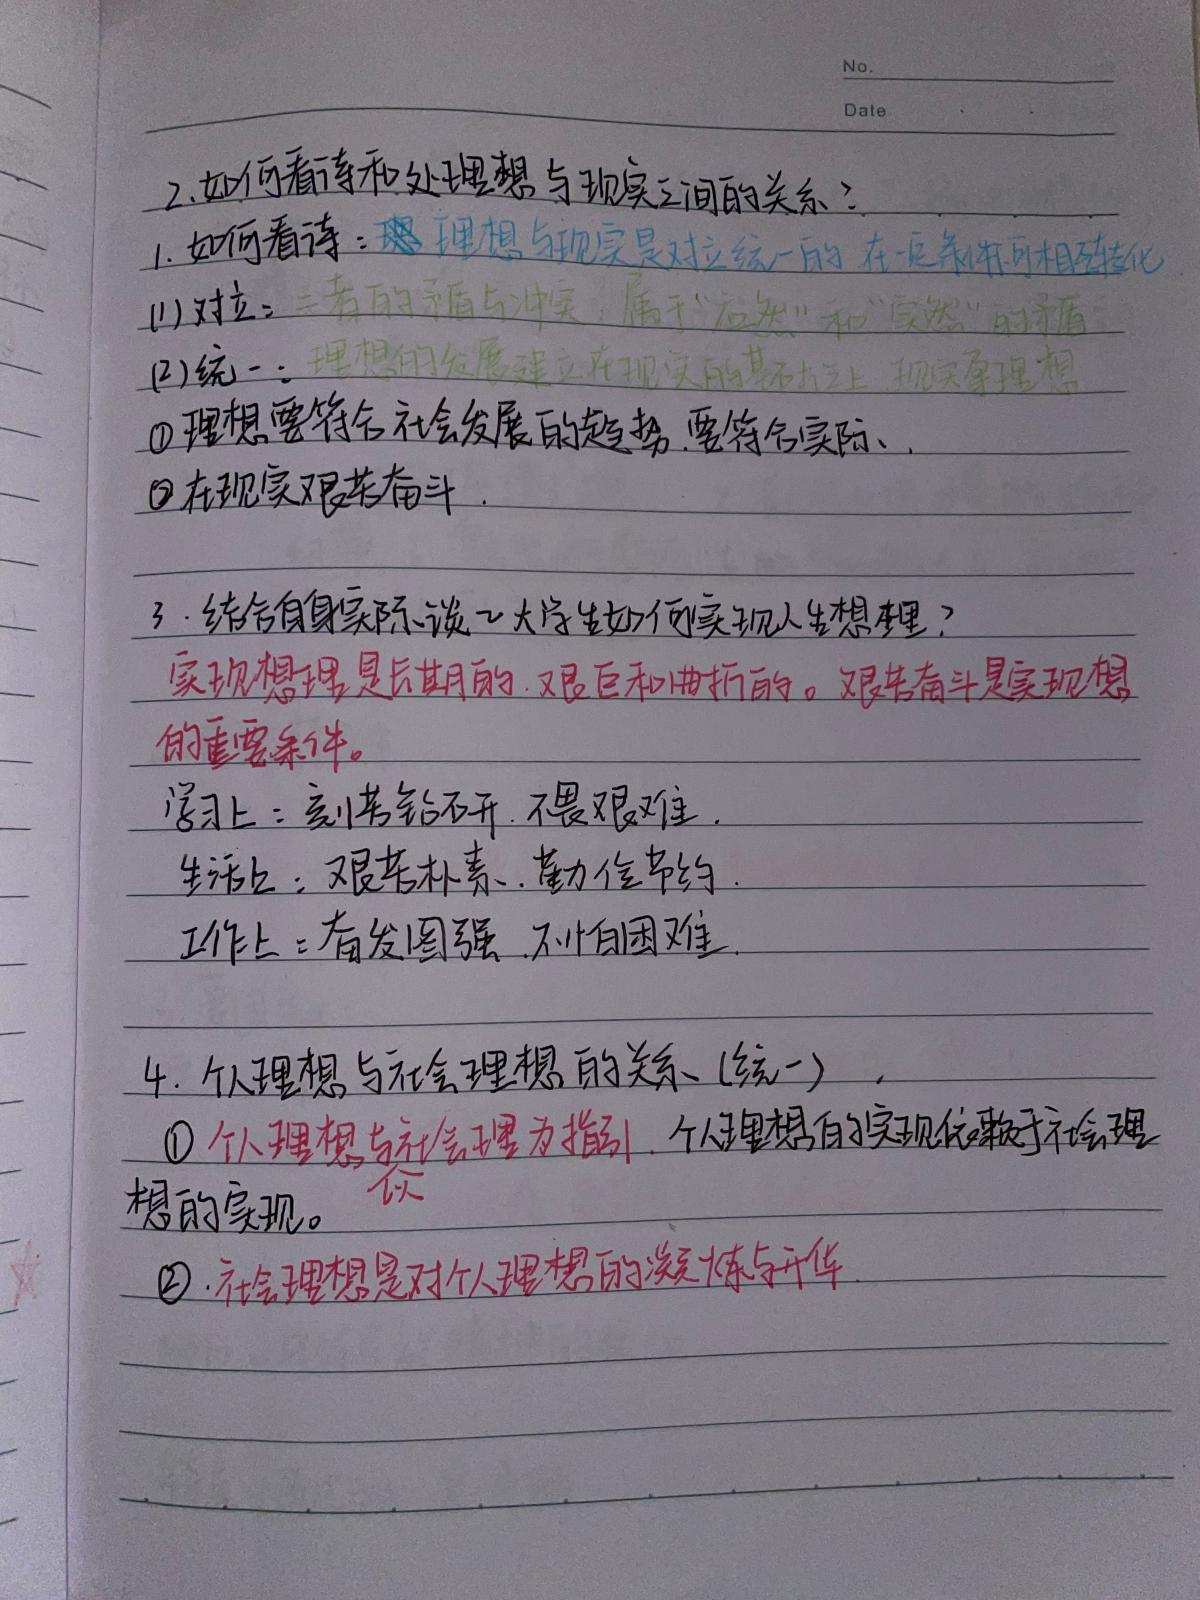 No.
Date
2.如何看待和处理想与现实之间的关系?
1.如何看待: 理想与现实是对立统一的 在一定条件可相互转化
(1)对立:二者的矛盾与冲突,属于"应然"和"实然"的矛盾
(2)统一:理想的发展建立在现实的基础之上 现实 理想
①理想要符合社会发展的趋势.要符合实际、
②在现实艰苦奋斗.
3.结合自身实际谈大学生如何实现人生想理?
实现想理是长期的.艰巨和曲折的。艰苦奋斗是实现想
的重要条件。
学习上:刻苦钻研.不畏艰难.
生活上:艰苦朴素、勤俭节约.
工作上:奋发图强.不怕困难.
4.个人理想与社会理想的关系、(统一)
①个人理想与社会理为指引.个人理想的实现依赖于社会理
想的实现。
②.社会理想是对个人理想的凝炼与升华